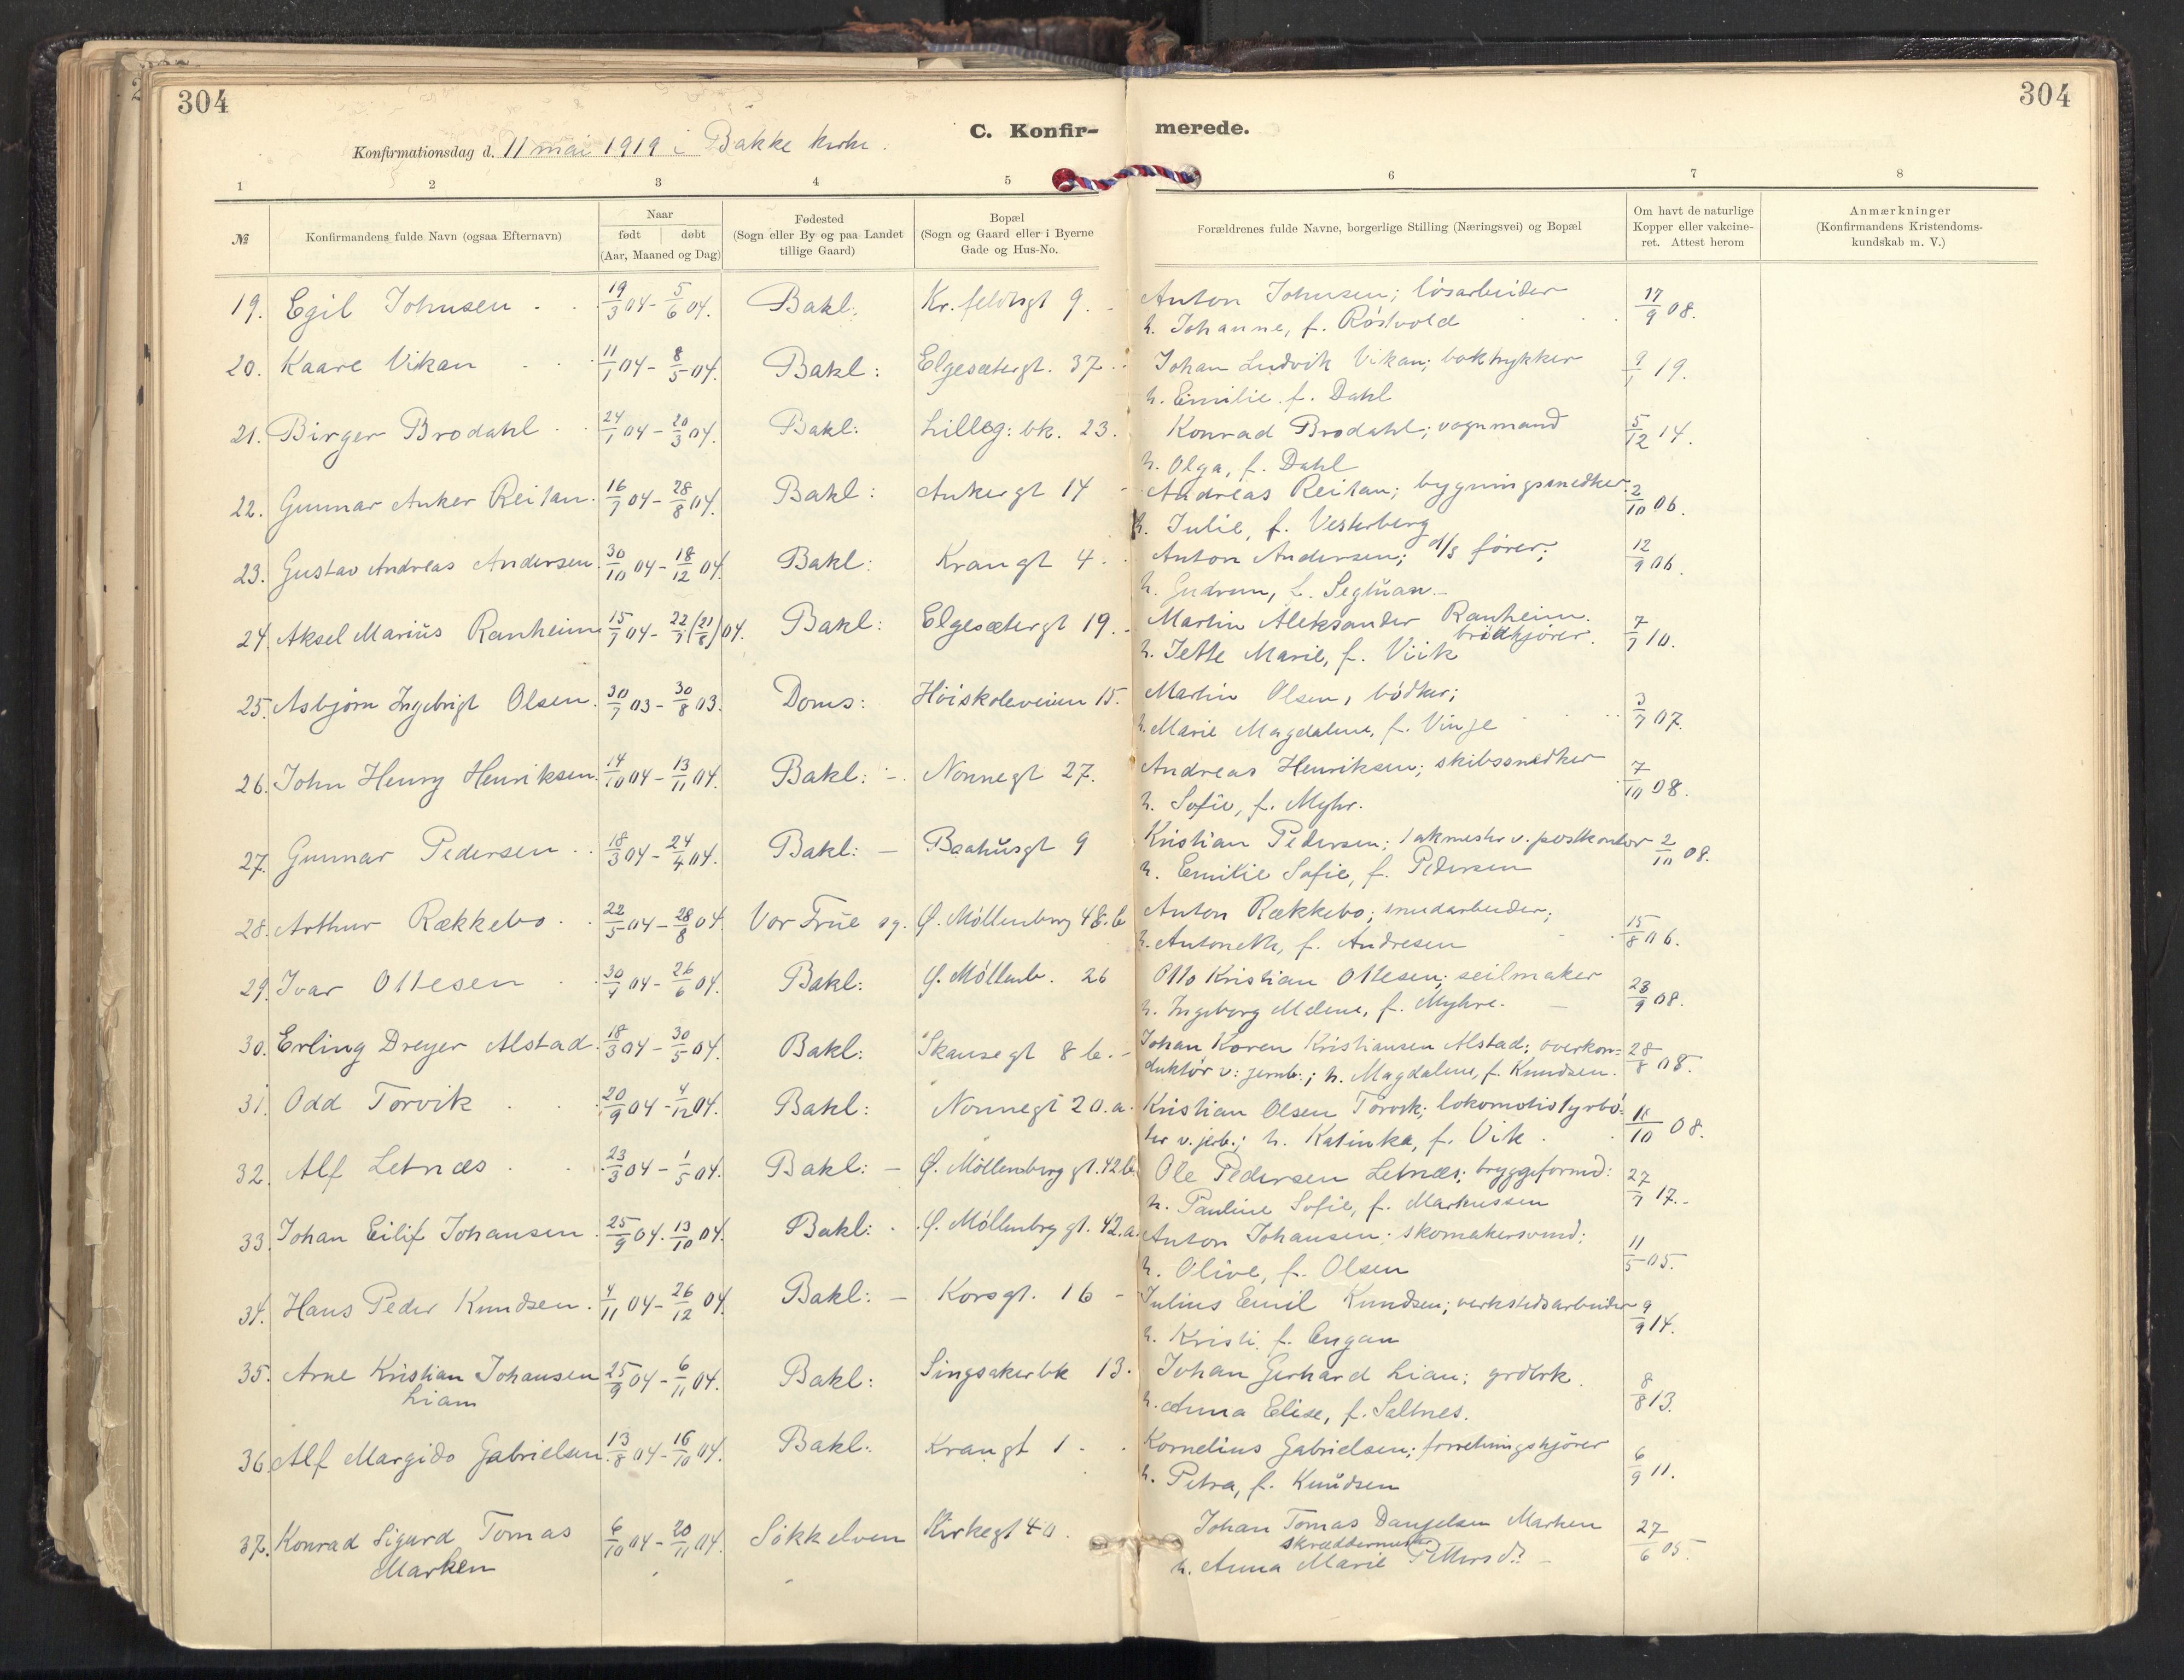 304
304
C. Konfir-
merede.
Konfirmationsdag d. 11 mai 1919 i Bakke kirke.
1 2 3 4 5 6 7 8
№
Konfirmandens fulde Navn (ogsaa Efternavn)
Naar
født | døbt
(Aar, Maaned og Dag)
Fødested
(Sogn eller By og paa Landet
tillige Gaard)
Bopæl
(Sogn og Gaard eller i Byerne
Gade og Hus-No.
Forældrenes fulde Navne, borgerlige Stilling (Næringsvei) og Bopæl
Om havt de naturlige
Kopper eller vakcine-
ret. Attest herom
Anmærkninger
(Konfirmandens Kristendoms-
kundskab m. V.)
19. Egil Johnsen 19/3 04 - 5/6 04. Bakl: Kr. feldtsgt 9. Anton Johnsen; løsarbeider 17/9 08.
h. Johanne, f. Røstvold
20. Kaare Vikan 11/1 04 - 8/5 04. Bakl: Elgesætergt. 37. Johan Ludvik Vikan; boktrykker 9/1 19.
h. Emilie f. Dahl
21. Birger Brodahl 24/1 04 - 20/3 04. Bakl: Lilleg: bk. 23. Konrad Brodahl; vognmand 5/12 14.
h. Olga, f. Dahl
22. Gunnar Anker Reitan. 16/7 04 - 28/8 04. Bakl: Ankergt 14 Andreas Reitan; bygningssnedker 2/10 06.
h. Julie, f. Vesterberg
23. Gustav Andreas Andersen. 30/10 04 - 18/12 04. Bakl: Krangt 4. Anton Andersen; d/s fører; 12/9 06.
h. Gudrun, f. Segtnan
24. Aksel Marius Ranheim 15/7 04 - 22/7 (21/8) 04. Bakl: Elgesætergt 19. Martin Aleksander Ranheim. 7/7 10.
brødkjører.
h. Jette Marie, f. Viik
25. Asbjørn Ingebrigt Olsen. 30/7 03 - 30/8 03. Doms: Høiskoleveien 15. Martin Olsen, bødker; 3/7 07.
h. Marie Magdalene, f. Vinje
26. John Henry Henriksen. 14/10 04 - 13/11 04. Bakl: - Nonnegt 27. Andreas Henriksen; skibssnedker 7/10 08.
h. Sofie, f. Myhr.
27. Gunnar Pedersen 18/3 04 - 24/4 04. Bakl: - Baahusgt 9 Kristian Pedersen; takmester v. postkontor 2/10 08.
h. Emilie Sofie, f. Pedersen
28. Arthur Rækkebo 22/5 04 - 28/8 04. Vor Frue sg. Ø. Møllenberg 48. b Anton Rækkebo; smedarbeider; 15/8 06.
h. Antonette, f. Andresen
29. Ivar Ottesen 30/4 04 - 26/6 04. Bakl: Ø. Møllenb. 26 Otto Kristian Ottesen; seilmaker 23/9 08.
h. Ingeborg Melene, f. Myhre.
30. Erling Dreyer Alstad. 18/3 04 - 30/5 04. Bakl: Skansegt 8 b. - Johan Koren Kristiansen Alstad; overkon= 28/8 08.
duktør v: jernb.; h. Magdalene, f. Knudsen.
31. Odd Torvik 20/9 04 - 4/12 04. Bakl: Nonnegt 20. a. Kristian Olsen Torvik; lokomotivfyrbø- 18/10 08.
ter v. jerb.; h. Katinka, f. Vik.
32. Alf Letnæs 23/3 04 - 1/5 04. Bakl: - Ø. Møllenberg gt. 42 b. Ole Pedersen Letnæs; bryggeformd: 27/7 17.-
h. Pauline Sofie, f. Markussen
33. Johan Eilif Johansen 25/9 04. 13/10 04. Bakl: Ø. Møllenbrg gt. 42. a. Anton Johansen; skomakersvend; 11/5 05.
h. Olive, f. Olsen
34. Hans Peder Knudsen. 4/11 04 - 26/12 04. Bakl: - Korsgt. 16 - Julius Emil Knudsen; verkstedsarbeider 9/9 14.
h. Kristi, f. Engan
35. Arne Kristian Johansen 25/9 04 - 6/11 04. Bakl: Singsakerbk 13. Johan Gerhard Lian; grdbrk. 8/8 13.
Lian
h. Anna Elise, f. Saltnes.
36. Alf Margido Gabrielsen. 13/8 04 - 16/10 04. Bakl: Krangt 1. Kornelius Gabrielsen; forretningskjører 6/9 11.
h. Petra, f. Knudsen
37. Konrad Sigurd Tomas 6/10 04 - 20/11 04. Søkkelven Kirkegt 40. Johan Tomas Danjelsen Marken 27/6 05.
Marken
skræddermester
h. Anna Marie Pettersd: